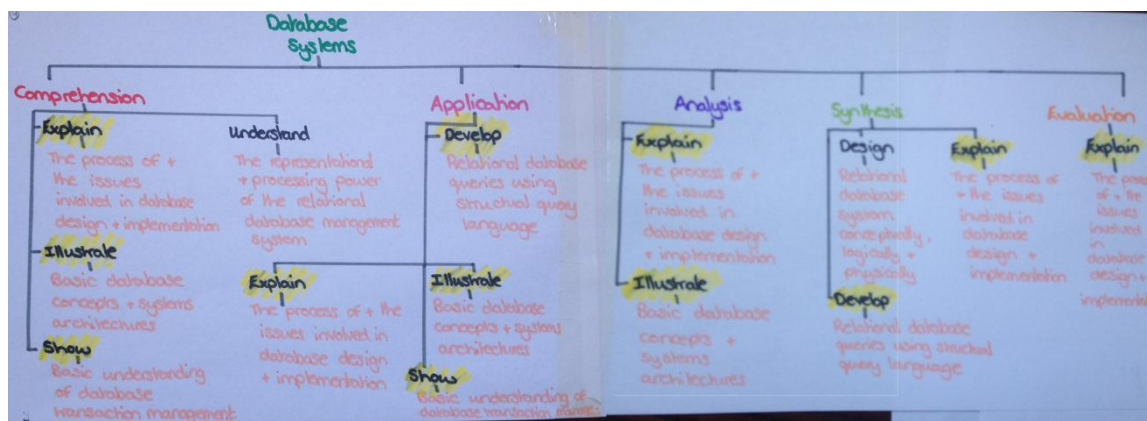 Database
Systems
Comprehension
Explain
The process of +
the issues
involved in database
design + implementation
Illustrate
Basic database
concepts + systems
architectures
Show
Basic understanding
of database
transaction management
Understand
The representational
+ processing power
of the relational
database management
system
Application
Develop
Relational database
queries using
structual query
language
Explain
The process of + the
issues involved in
database design
+ implementation
Illustrate
Basic database
concepts + systems
architectures
Show
Basic understanding of
database transaction
Analysis
Explain
The process of +
the issues
involved in
database design
+ implementation
Illustrate
Basic database
concepts +
systems
architectures
Synthesis
Design
Relational
database
system
conceptually,
logically +
physically
Develop
Relational database
queries using structual
query language
Explain
The process of
+ the issues
involved in
database
design +
implementation
Evaluation
Explain
The
of + the
issues
involved
in
database
design